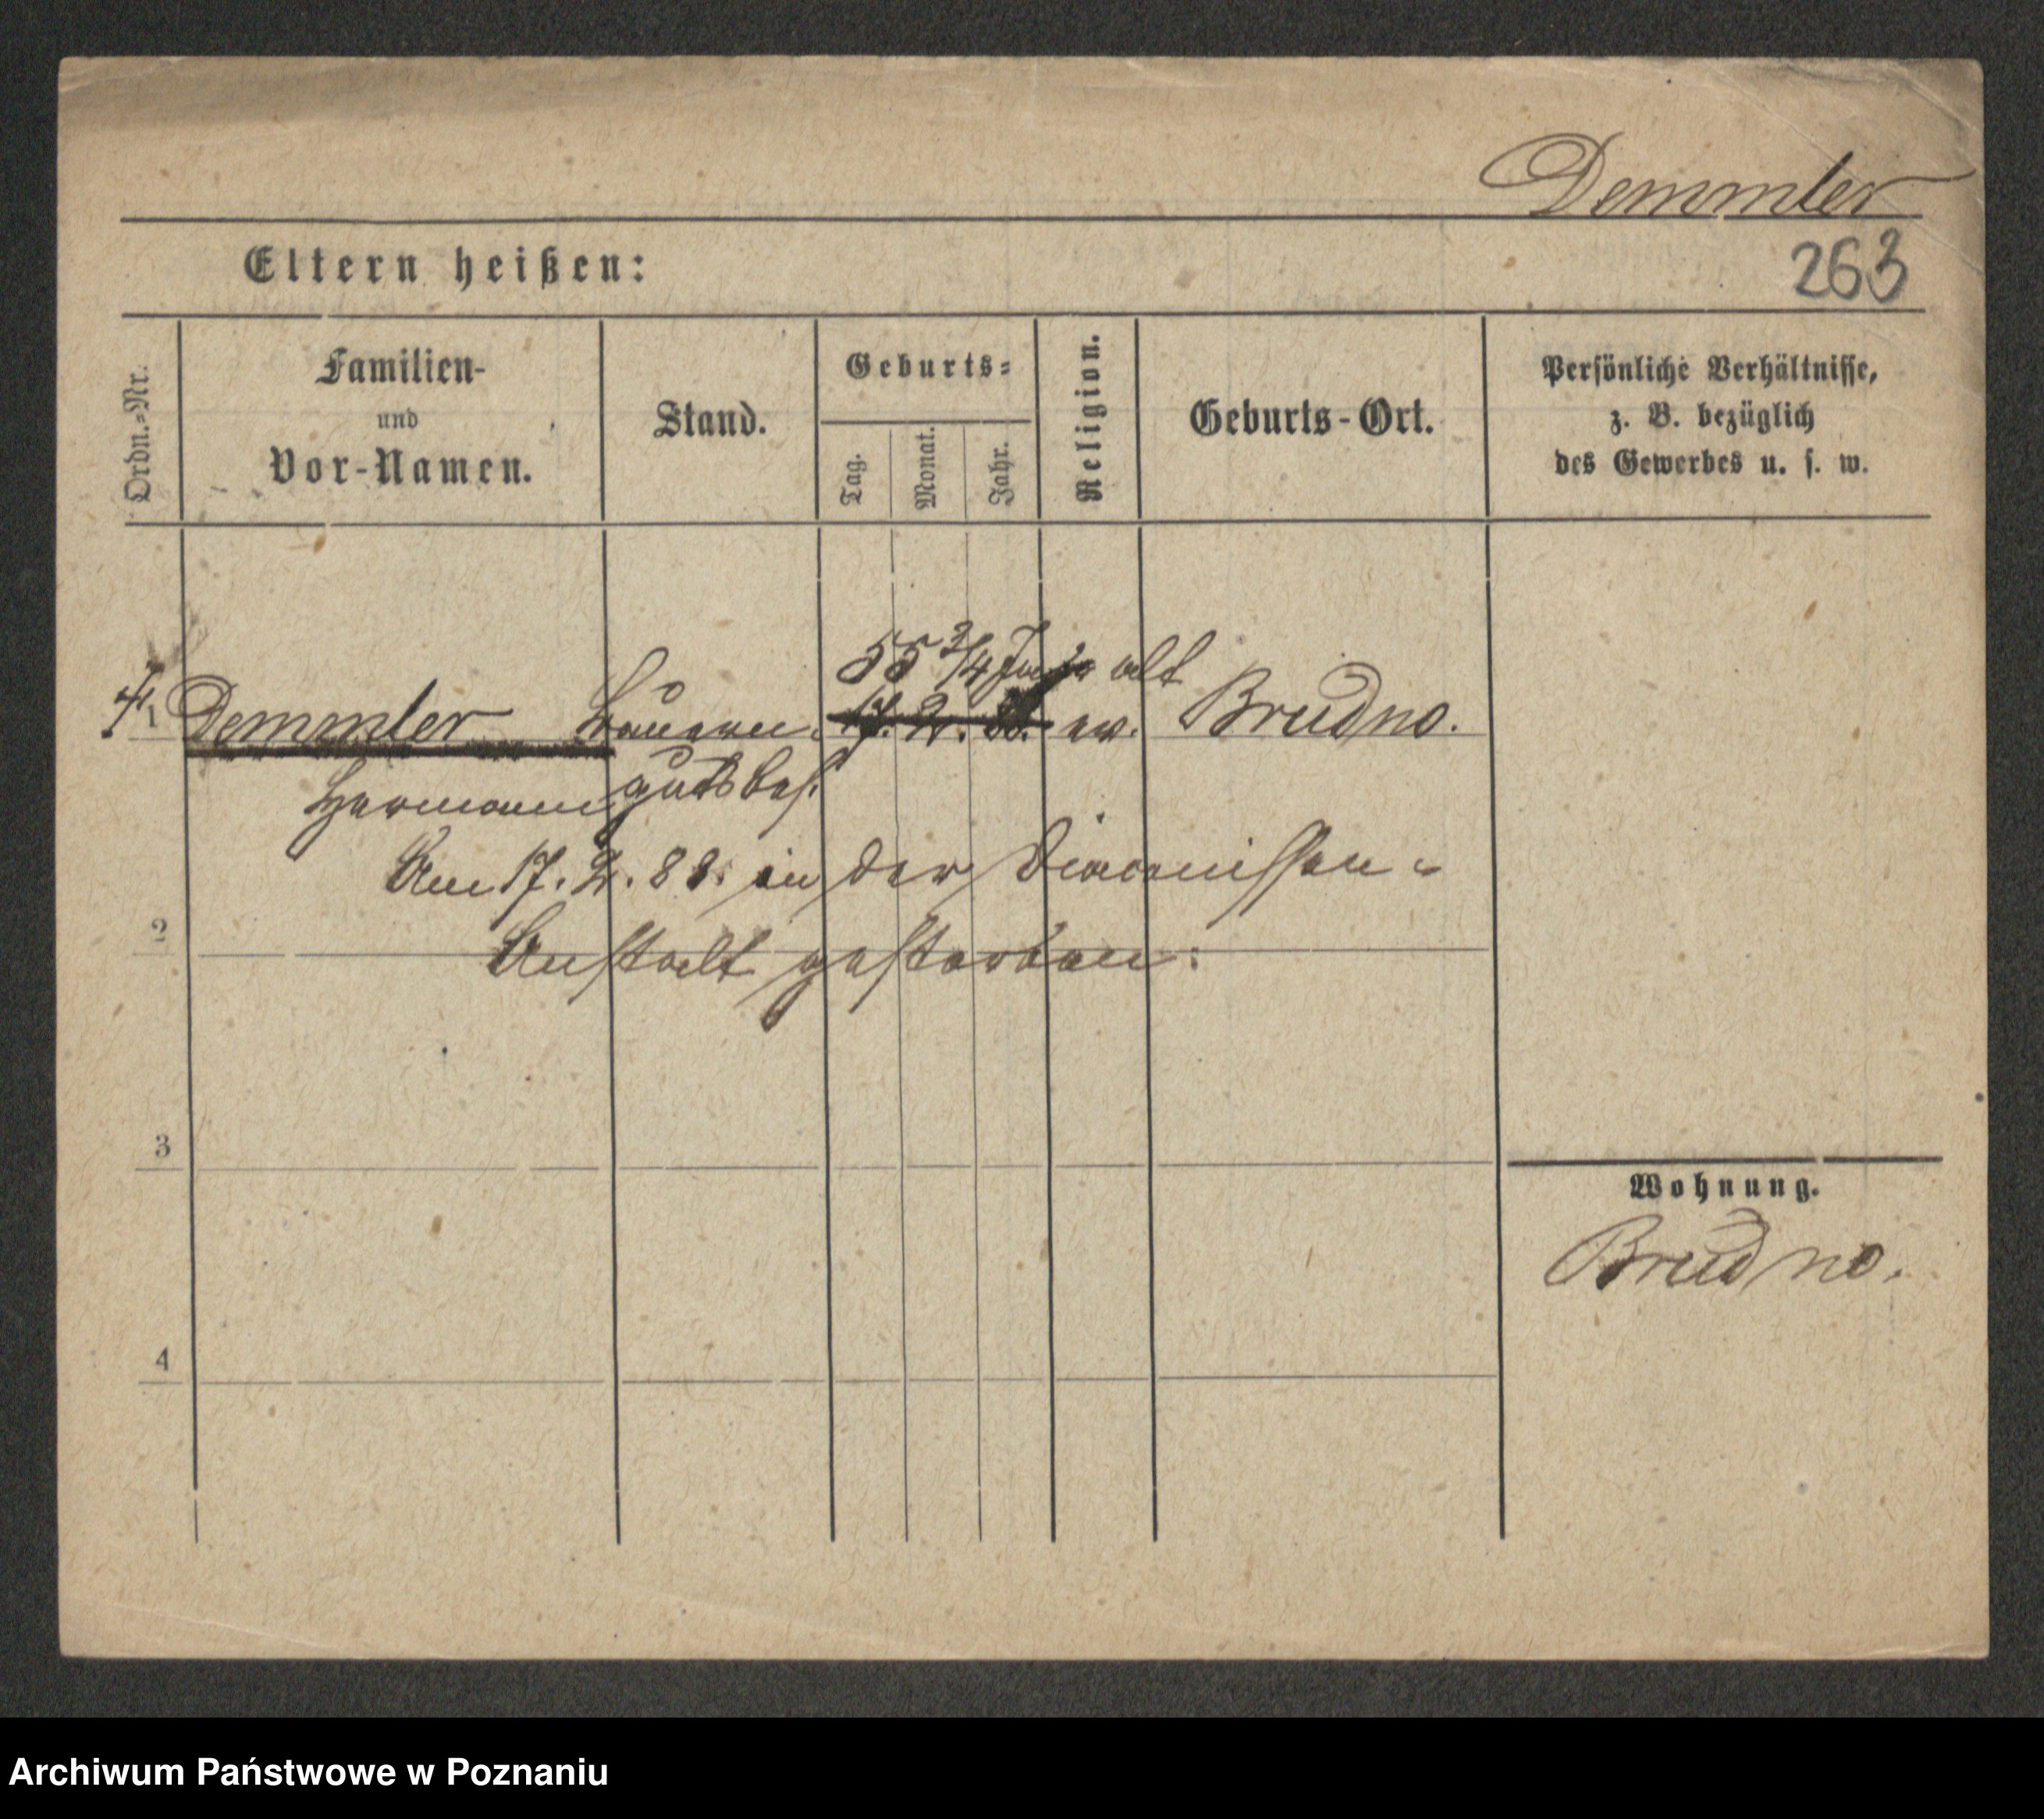 Demmler
Eltern heißen:
263
Ordn.=Nr.
Familien-
und
Vor-Namen.
Stand.
Geburts=
Tag.
Monat.
Jahr.
Religion.
Geburts-Ort.
Persönliche Verhältnisse,
z. B. bezüglich
des Gewerbes u. s. w.
55 3/4 Jahr alt
1 Demmler Bauern= 17. 2. 88. ev. Brudno.
Hermann gutsbes.
Am 17. 2. 88. in der Diaconissen=
2
Anstalt gestorben.
3
Wohnung.
Brudno.
4
Archiwum Państwowe w Poznaniu